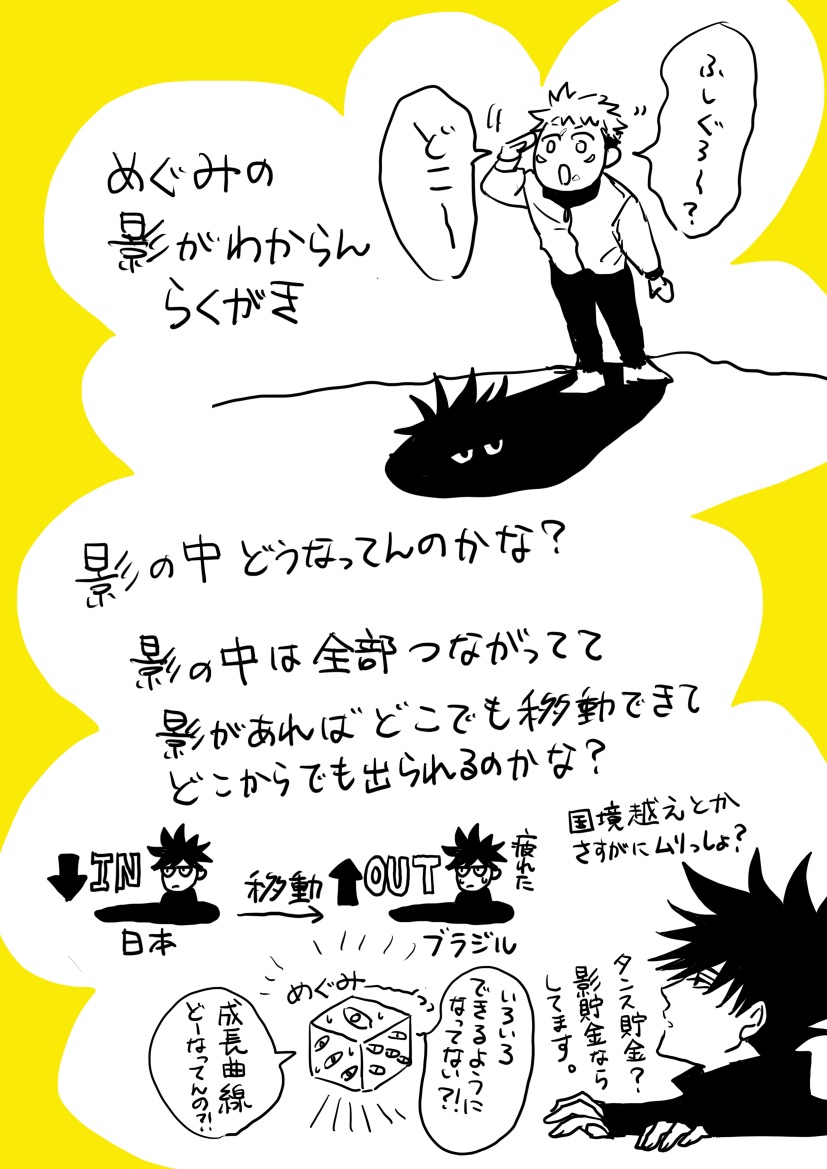 ふしぐろ～？
どこー
めぐみの
影がわからん
らくがき
影の中どうなってんのかな？
影の中は全部つながってて
影があればどこでも移動できて
どこからでも出られるのかな？
国境越えとか
さすがにムリっしょ？
IN
日本
移動
OUT
疲れた
ブラジル
タンス貯金？
影貯金なら
してます。
めぐみーっっ
いろいろ
できるように
なってない?!
成長曲線
どーなってんの?!